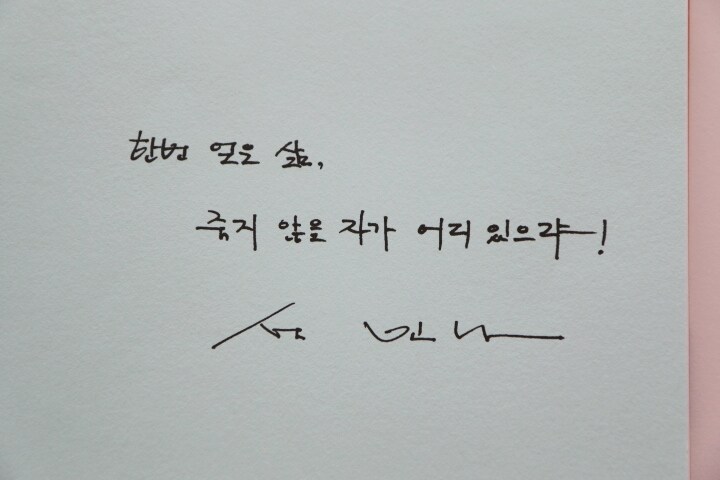 한번 얻은 삶,
죽지 않을 자가 어디 있으랴!